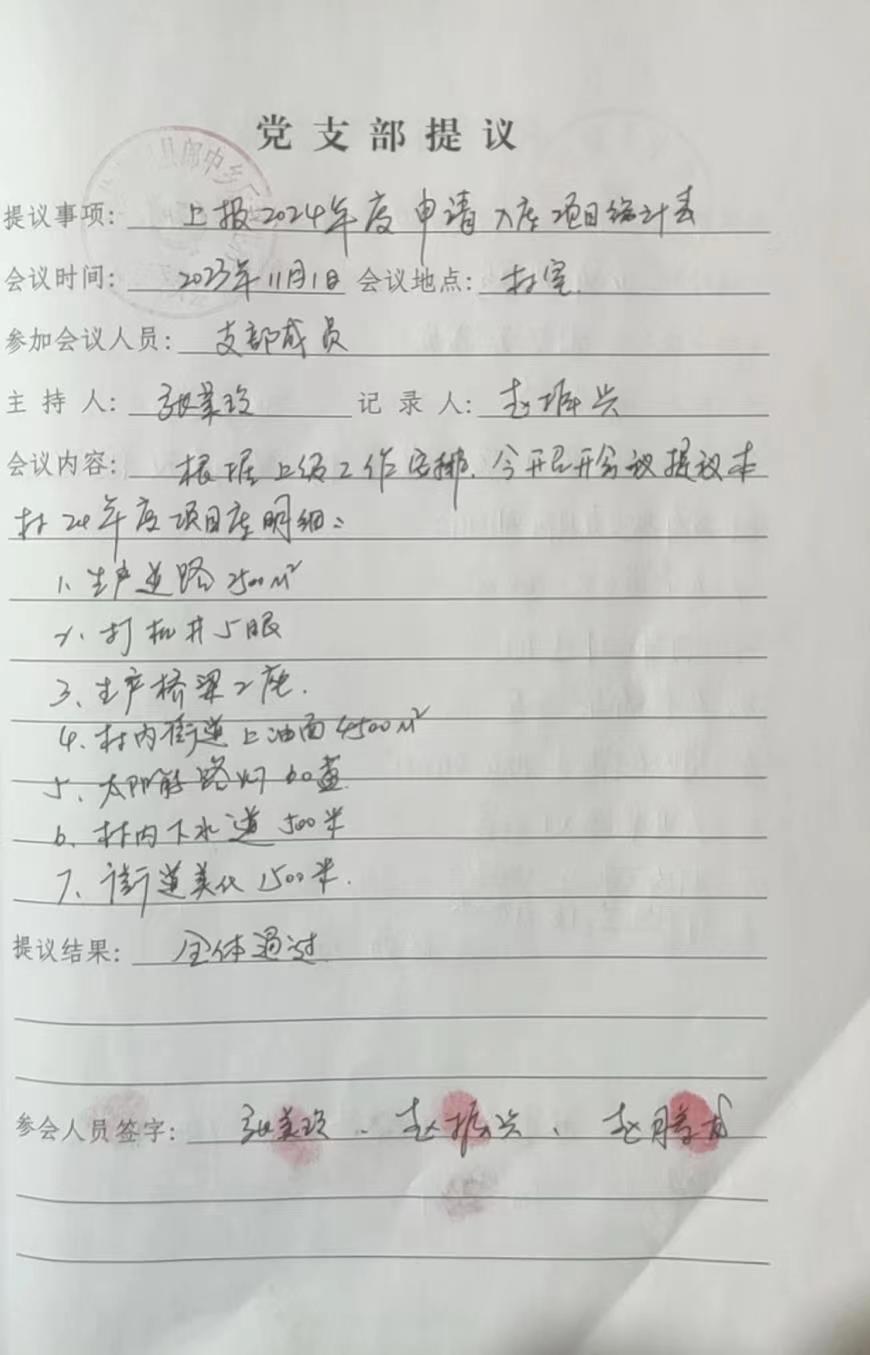 党支部提议
县郎中乡
提议事项：上报2024年度申请入库项目统计表
会议时间：2023年11月1日 会议地点：村室.
参加会议人员：支部成员
主持人：张美玲 记录人：赵振兴
会议内容：根据上级工作安排.今天召开会议提议本
村24年度项目库明细：
1、生产道路2500M²
2、打机井5眼
3、生产桥梁2座.
4、村内街道上油面4500M²
5、太阳能路灯60盏.
6、村内下水道500米
7、街道美化1500米.
提议结果：全体通过.
参会人员签字：张美玲、赵振兴、赵